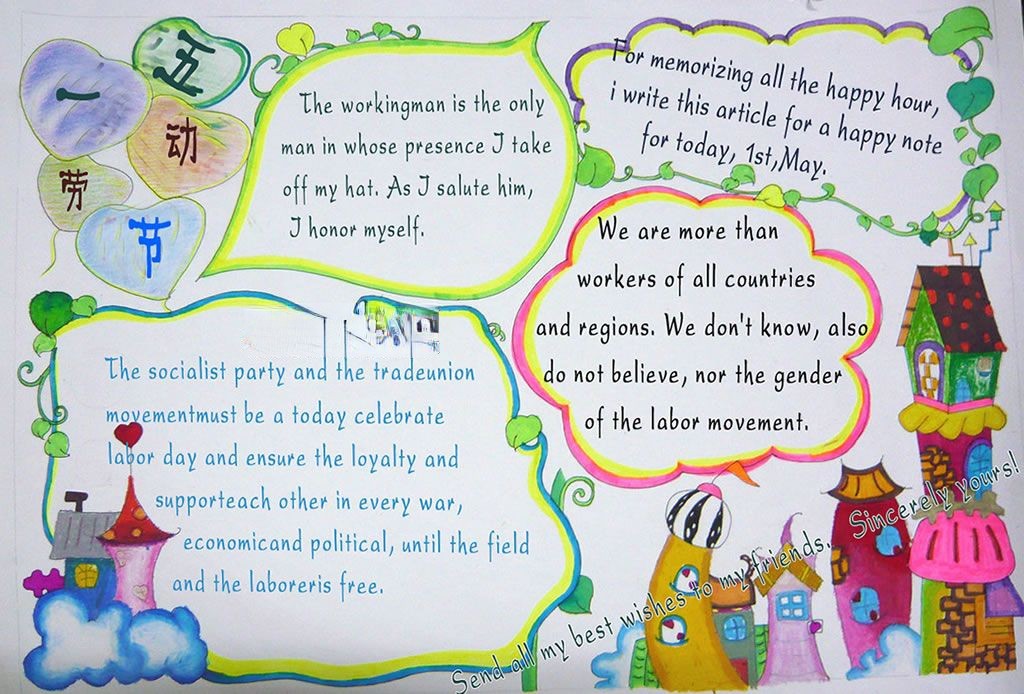 五
一
动
劳
节
The workingman is the only
man in whose presence I take
off my hat. As I salute him,
I honor myself.
For memorizing all the happy hour,
i write this article for a happy note
for today, 1st,May.
We are more than
workers of all countries
and regions. We don't know, also
do not believe, nor the gender
of the labor movement.
The socialist party and the tradeunion
movementmust be a today celebrate
labor day and ensure the loyalty and
supporteach other in every war,
economicand political, until the field
and the laboreris free.
Send all my best wishes to my friends. Sincerely yours!